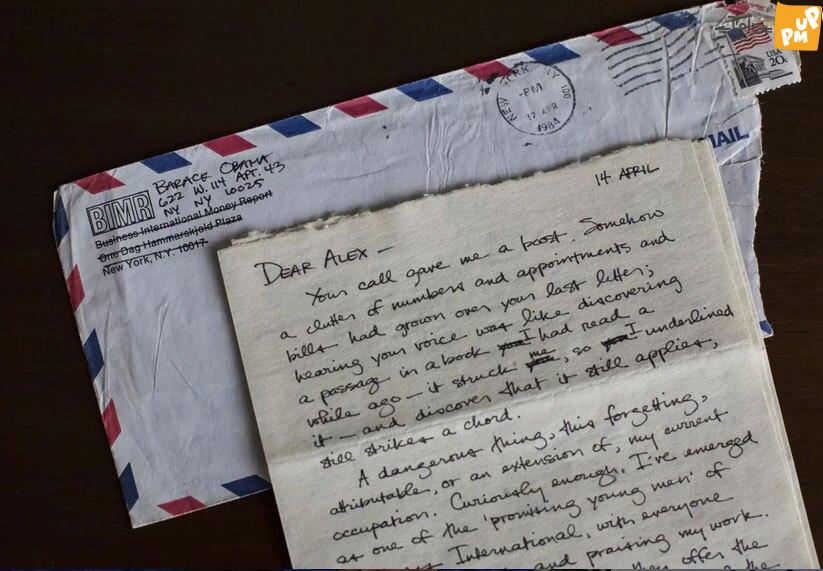 UP
PM
USA
20c
NEW YORK, NY 100
-PM
17 APR
1984
MAIL
BARACK OBAMA
622 W. 114 APT. 43
NY NY 10025
BIMR
Business International Money Report
One Dag Hammarskjold Plaza
New York, N.Y. 10017
14 APRIL
DEAR ALEX —
Your call gave me a boost. Somehow
a clutter of numbers and appointments and
bills had grown over your last letter;
hearing your voice was like discovering
a passage in a book I had read a
while ago — it struck me, so I underlined
it — and discover that it still applies,
still strikes a chord.
A dangerous thing, this forgetting,
attributable, or an extension of, my current
occupation. Curiously enough, I've emerged
as one of the 'promising young men' of
International, with everyone
and praising my work.
they offer the
the